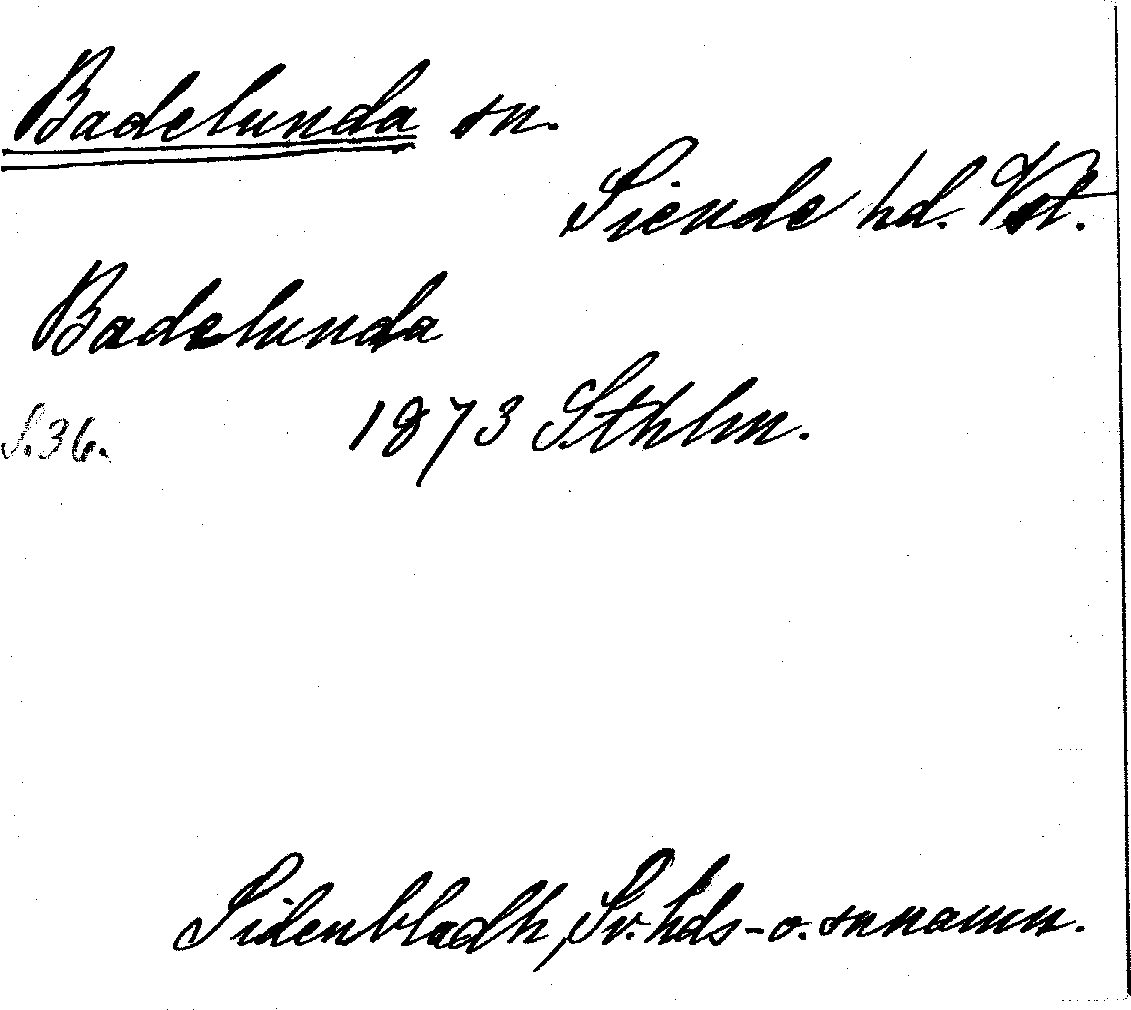 Badelunda sn.
Siende hd. Vstl.
Badelunda
S.36. 1873 Sthlm.
Sidenbladh, Sv. hds- o. snnamn.